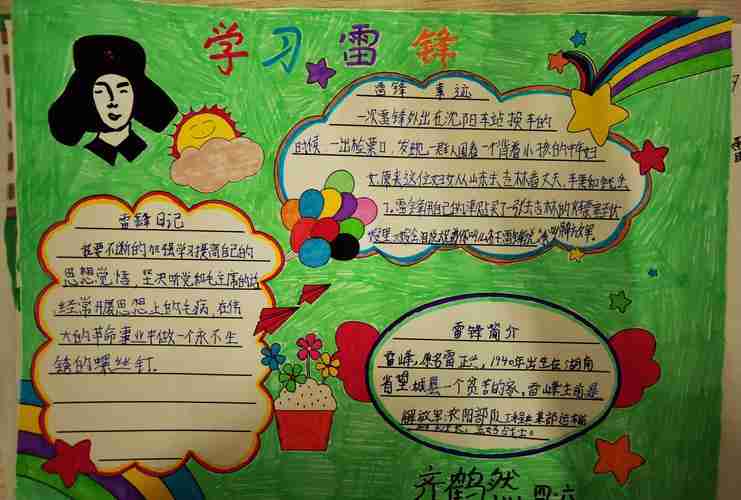 学习雷锋
雷锋事迹
一次雷锋外出在沈阳车站换车的
时候,一出检票口,发现一群人围着一个背着小孩的中年妇
女,原来这位妇女从山东去吉林看丈夫,车票和钱丢
了。雷锋用自己的津贴买了一张去吉林的火车票塞到
雷锋日记
我要不断的加强学习提高自己的
思想觉悟,坚决听党和毛主席的话
经常开展思想上的毛病,在伟
大的革命事业中做一个永不生
锈的螺丝钉.
雷锋简介
雷峰,原名雷正兴,1940年出生在湖南
省望城县一个贫苦的家,雷峰生前是
解放军沈阳部队工程兵某部运输
齐鹤然 四.六